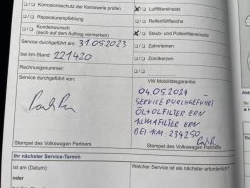 Korrosionsschutz der Karosserie prüfen
Luftfiltereinsatz
Reparaturempfehlung
Reifenfüllflasche
Kundenwunsch
(auch auf dem Auftrag vermerken)
Staub- und Pollenfiltereinsatz
Service durchgeführt am: 31.05.2023
Zahnriemen
bei km-Stand: 221420
Zündkerzen
Rechnungsnummer:
Service durchgeführt von:
VW Mobilitätsgarantie
04.05.2024
SERVICE DURCHGEFÜHRT
ÖL+ÖLFILTER ERN
KLIMAFILTER ERN
BEI KM. 234250
Stempel des Volkswagen Partners
Stempel des Volkswagen Partners
Ihr nächster Service-Termin
Ist am (Datum)
Welcher Service ist als erforderlich
oder